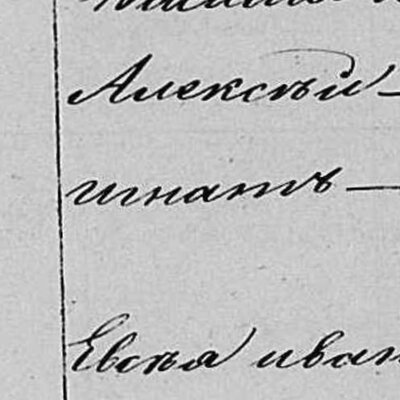 Алексѣй
игнатъ
Евсѣя иван